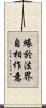 緣於法界
自相作意